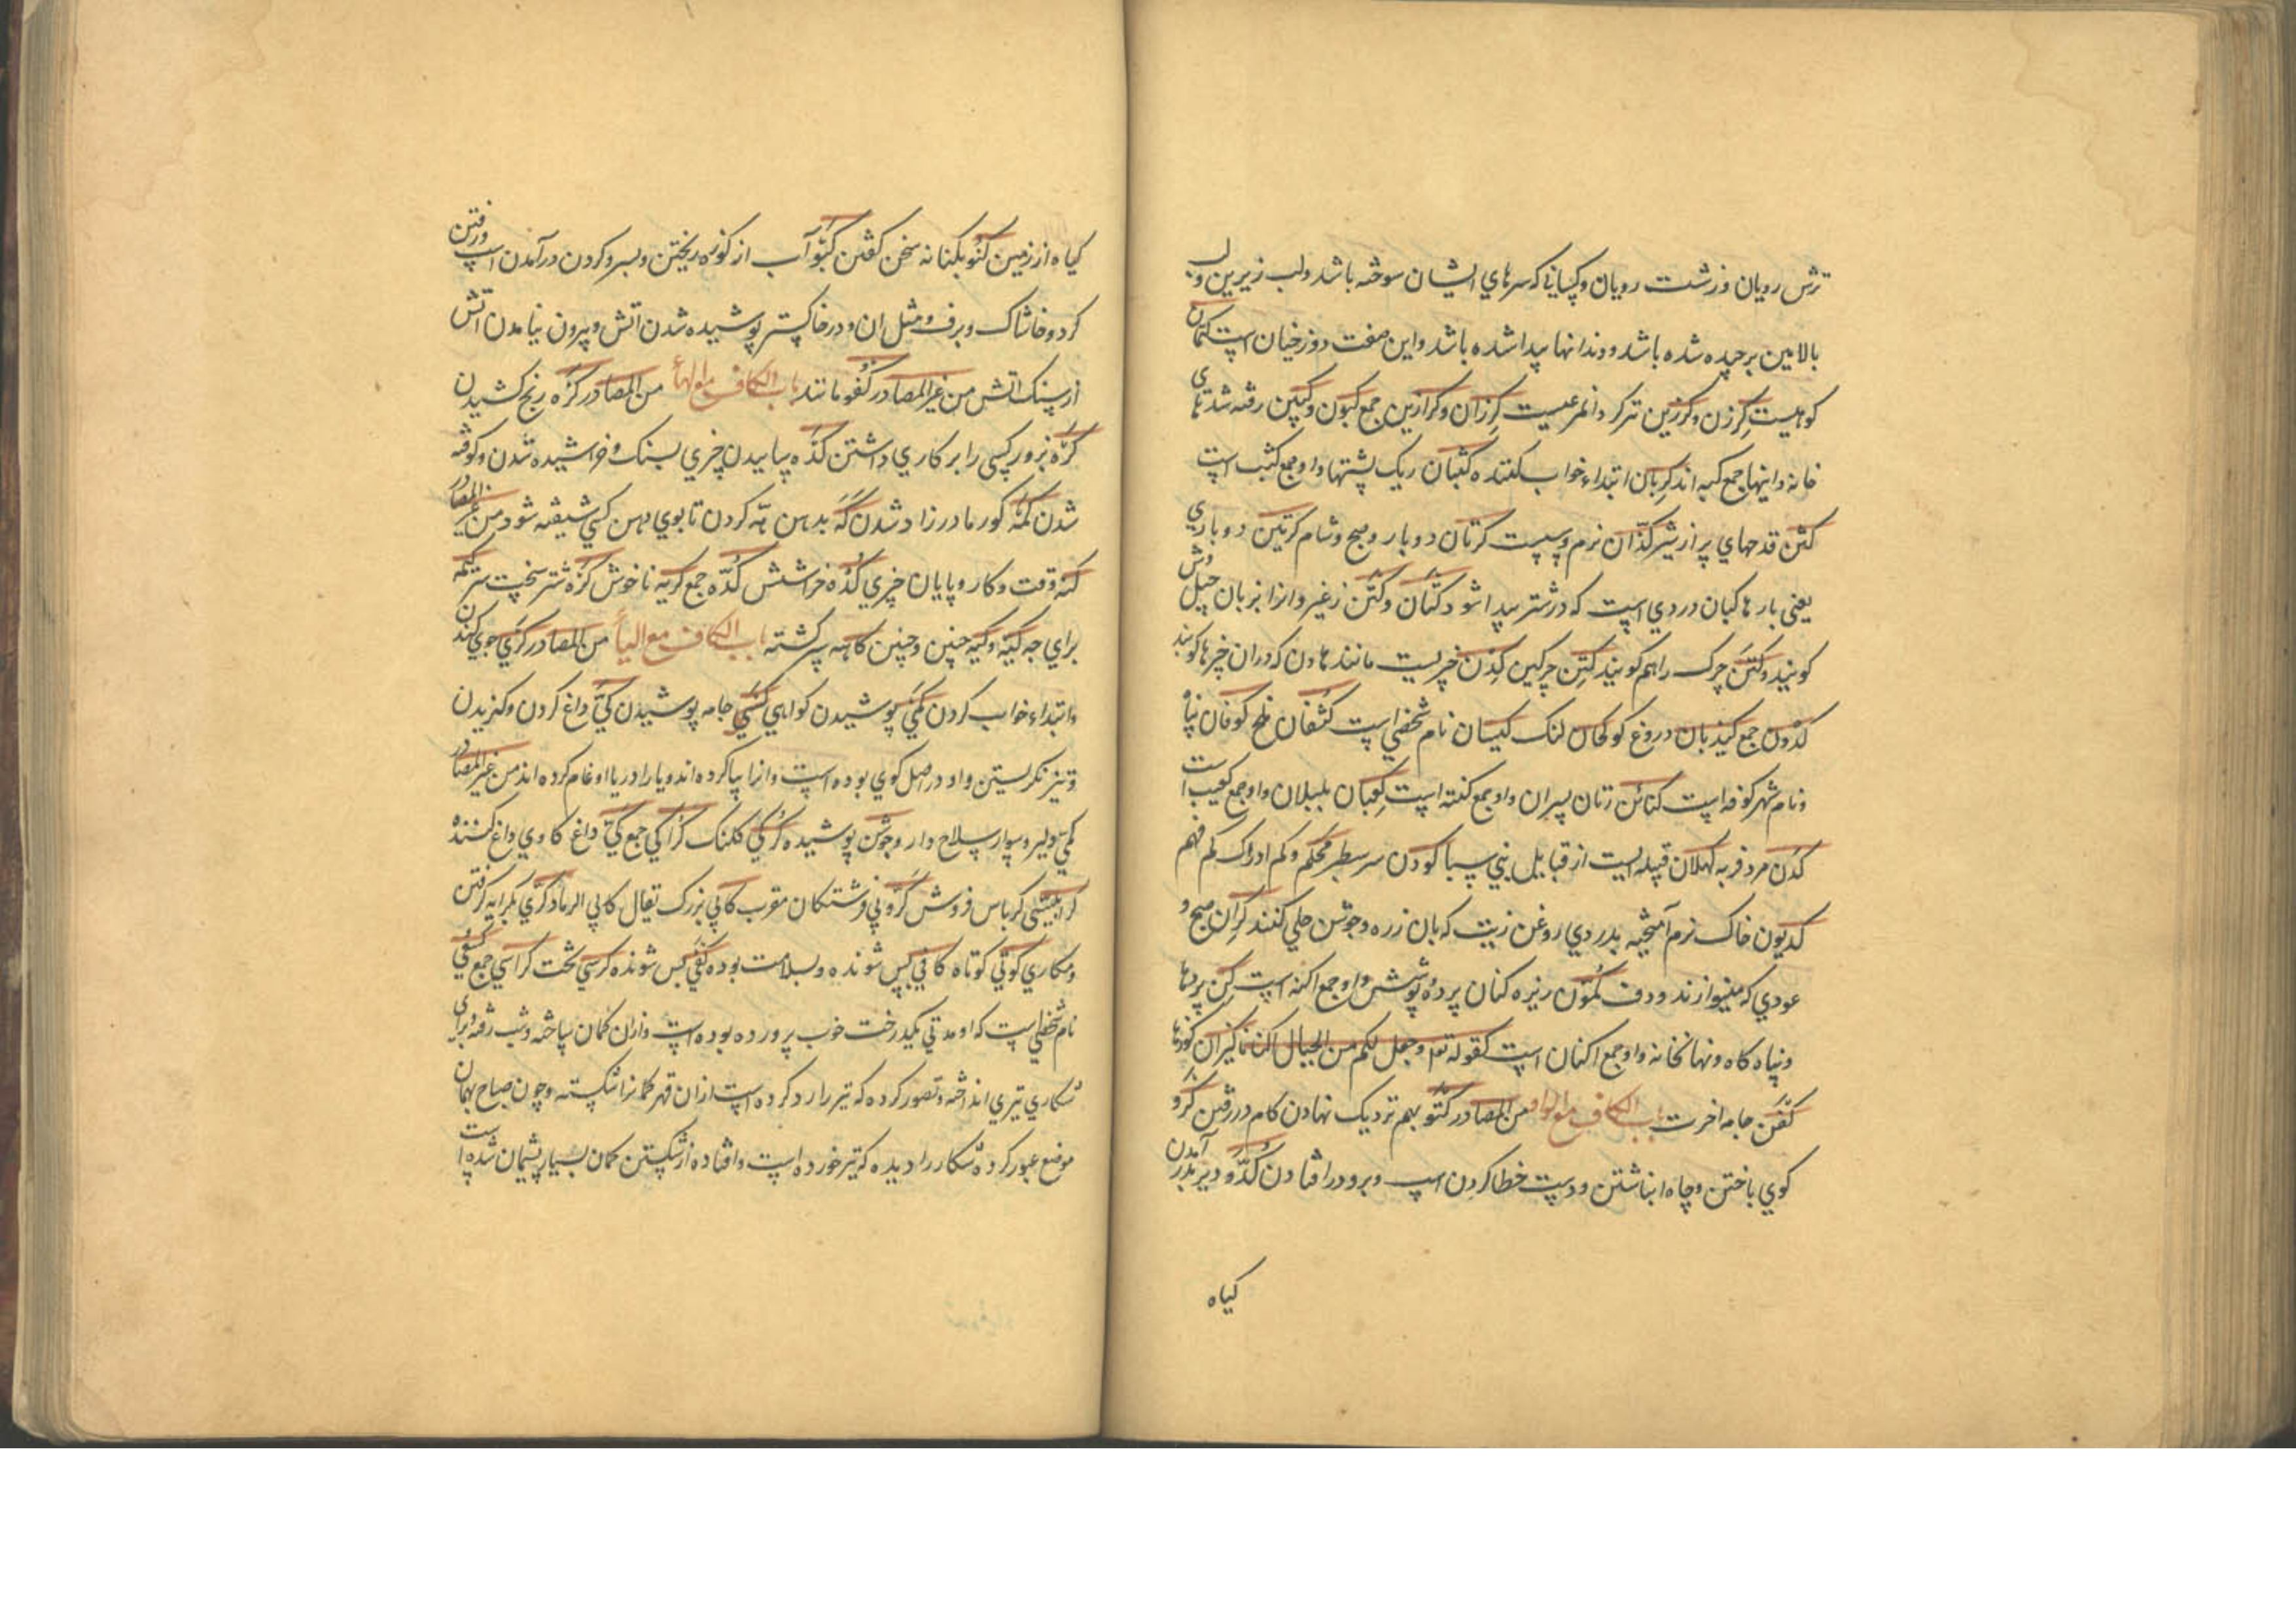 ترش رویان و زشت رویان و کسانی که سرهای ایشان سوخته باشد و لب زیرین و لب
بالایین برچیده شده باشد و دندانها پیدا شده باشد و این صفت دوزخیان است کتمان
کوهیست کرزن و کرزین تبر کردانمر عیست کرزان و کرازین جمع کبون و کبین رفته شدهای
خانه و اینها جمع کبه اند کربان ابتداء خواب کننده کثبان ریک پشتها و او جمع کثب است
کثن قدحهای پر از شیر کذان نرم و سست کرتان دو بار و صبح و شام کرتین دو باری
یعنی بارها کبان دردی است که در شتر پیدا شود کتان و کتن زغیر و انرا بزبان جیل وش
کویند و کتن چرک را هم کویند کتن چرکین کذن چیزیست مانند هاون که در ان چیزها کوبند
کدون جمع کیذبان دروغ کو کحان لنک کیسان نام شخصی است کشفان طح کوفان پناه
و نام شهر کوفه است کنائن زنان پسران و او جمع کنته است کعبان بلبلان و او جمع کعیب است
کدن مرد فربه کهلان قبیله ایست از قبایل بنی سبا کودن سرسطبر محکم و کم ادراک کم فهم
کدیون خاک نرم آمیخته بدردی روغن زیت که بان زره و جوشن جلی کنند کران صبح و
عودی که مینوازند و دف کمون زیره کنان پرده و پوشش و او جمع اکنه است کن پردها
و پناه کاه و نهانخانه و او جمع اکنان است کقوله تع و جعل لکم من الجبال اکنانا کیزان کوزها
کفن جامه اخرت باب الکاف مع الواو من المصادر کتو بهم نزدیک نهادن کام در رفتن کرو
کوی باختن و چاه انباشتن و دست خطا کردن اسپ و برو در افتادن کدو دیر بدر آمدن
کیاه
کیاه از زمین کنو بکنانه سخن کفتن کبو آب از کوزه ریختن و بسر و کردن درآمدن اسپ و رفتن
کرد و خاشاک و برف و مثل ان و در خاکستر پوشیده شدن اتش و بیرون نیامدن اتش
از سنک اتش من غیر المصادر کفو مانند باب الکاف مع الهاء من المصادر کره رنج کشیدن
کره بزور کسی را بر کاری داشتن کده ساییدن چیزی بسنک و خراشیده شدن و کوفته
شدن کمه کور مادرزاد شدن که بدهن هه کردن تا بوی دهن کسی شنیفته شود من غیر المصادر
کنه وقت و کار و پایان چیزی کده خراشش کده جمع کریه ناخوش کزه شتر سخت سر کمه
برای چه کیه و کیه چنین و چنین کاهه سرکشته باب الکاف مع الیاء من المصادر کری جوی کندن
و ابتداء خواب کردن کمی پوشیدن کواهی کسی جامه پوشیدن کی داغ کردن و کزیدن
و تیز نکریستن و او در اصل کوی بوده است و انرا یا کرده اند و یا را در یا ادغام کرده اند من غیر المصادر
کمی دلیر و سوار سلاح دار و جوشن پوشیده کرکی کلنک کراکی جمع کی داغ کاوی داغ کننده
کرابیسی کرباس فروش کروبی فرشتکان مقرب کابی بزرک یقال کابی الرماد کری بکرایه کرفتن
و مکاری کوتی کوتاه کافی بس شونده و بسلامت بوده کفی بس شونده کرسی تخت کراسی جمع کسعی
نام شخصی است که او مدتی یکدرخت خوب پرورده بوده است و ازان کمان ساخته و شب رفته و برای
شکاری تیری انداخته و تصور کرده که تیر را رد کرده است ازان قهر کمانرا شکسته و چون صباح بهمان
موضع عبور کرده شکار را دیده که تیر خورده است و افتاده از شکستن کمان بسیار پشیمان شده است